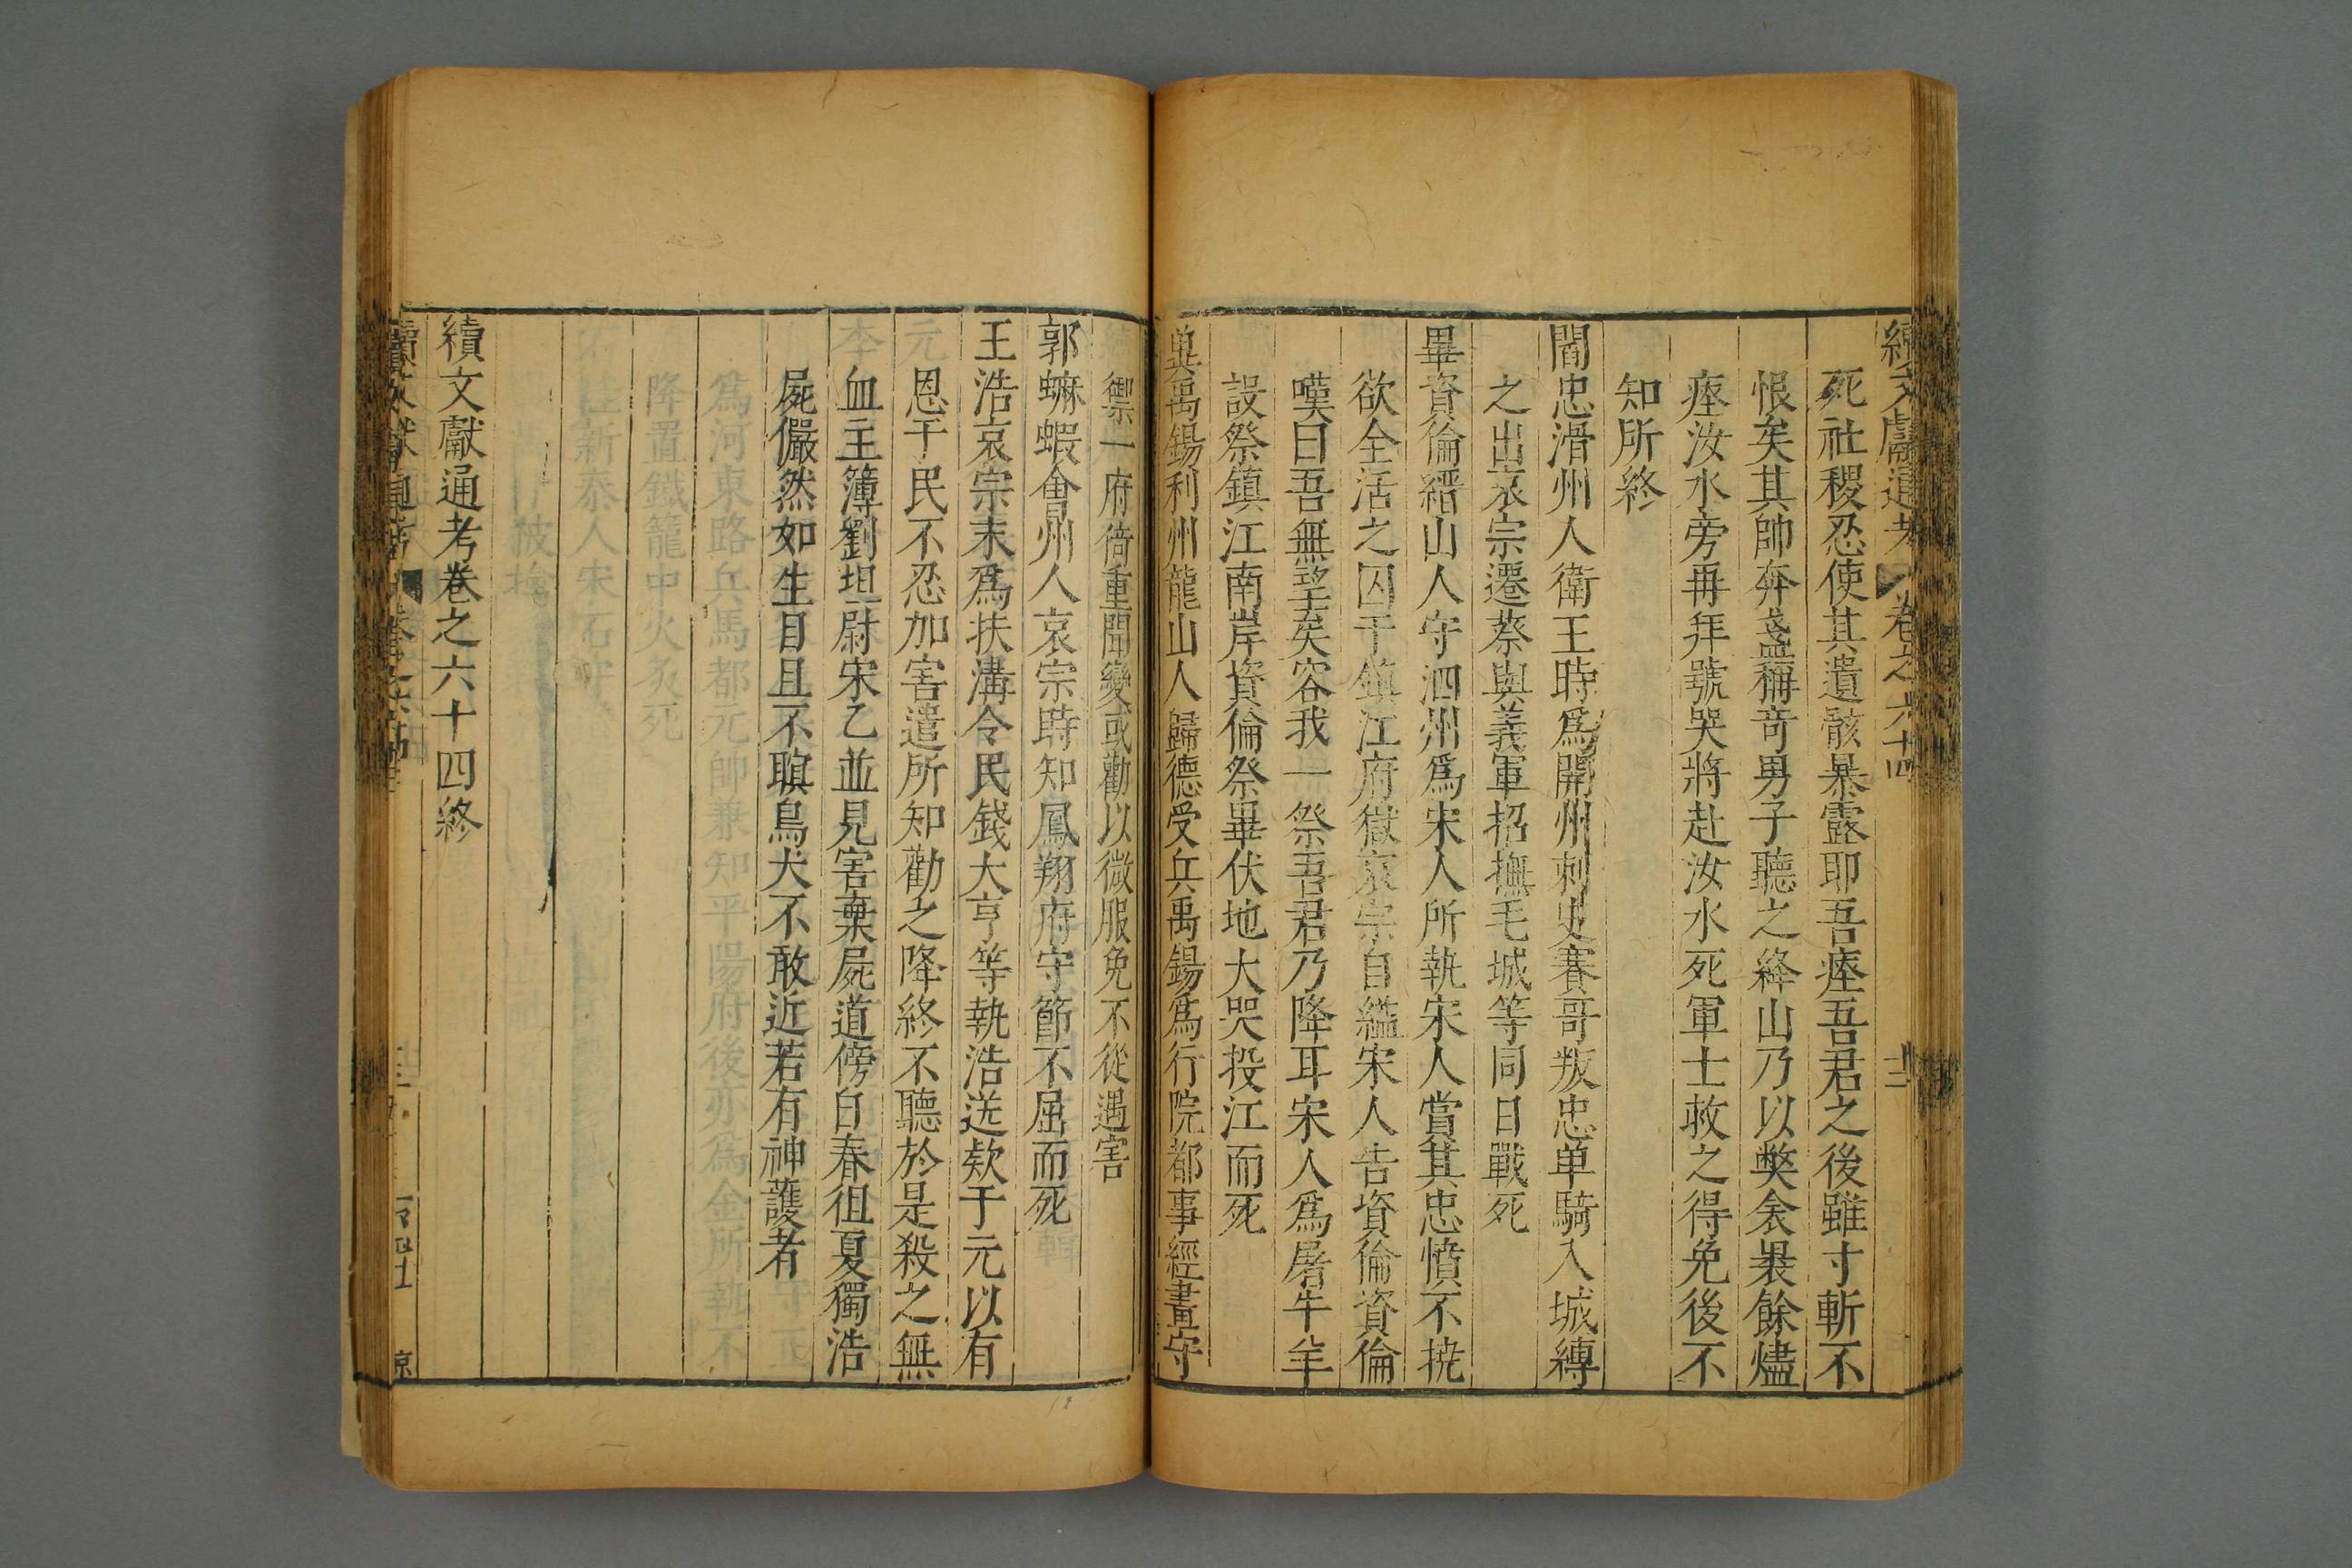 續文獻通考 卷之六十四 十二
死社稷忍使其遺骸暴露耶吾瘞吾君之後雖寸斬不
恨矣其帥奔盞稱竒男子聽之絳山乃以獘衾裹餘燼
瘞汝水旁再拜號哭將赴汝水死軍士救之得免後不
知所終
閻忠滑州人衛王時爲開州刺史賽哥叛忠单騎入城縛
之出哀宗遷蔡與義軍招撫毛城等同日戰死
畢資倫縉山人守泗州爲宋人所執宋人賞其忠憤不撓
欲全活之囚于鎮江府獄哀宗自縊宋人告資倫資倫
嘆曰吾無望矣容我一祭吾君乃降耳宋人爲屠牛羊
設祭鎮江南岸資倫祭畢伏地大哭投江而死
龍山人歸德受兵禹錫爲行院都事經畫守
禦一府倚重聞變或勸以微服免不從遇害
郭蝦會州人哀宗時知鳳翔府守節不屈而死
王浩哀宗末爲扶溝令民錢大亨等執浩送欵于元以有
恩于民不忍加害遣所知勸之降終不聽於是殺之無
血主簿劉坦尉宋乙並見害棄屍道傍自春徂夏獨浩
屍儼然如生目且不瞑鳥犬不敢近若有神護者
續文獻通考卷之六十四終